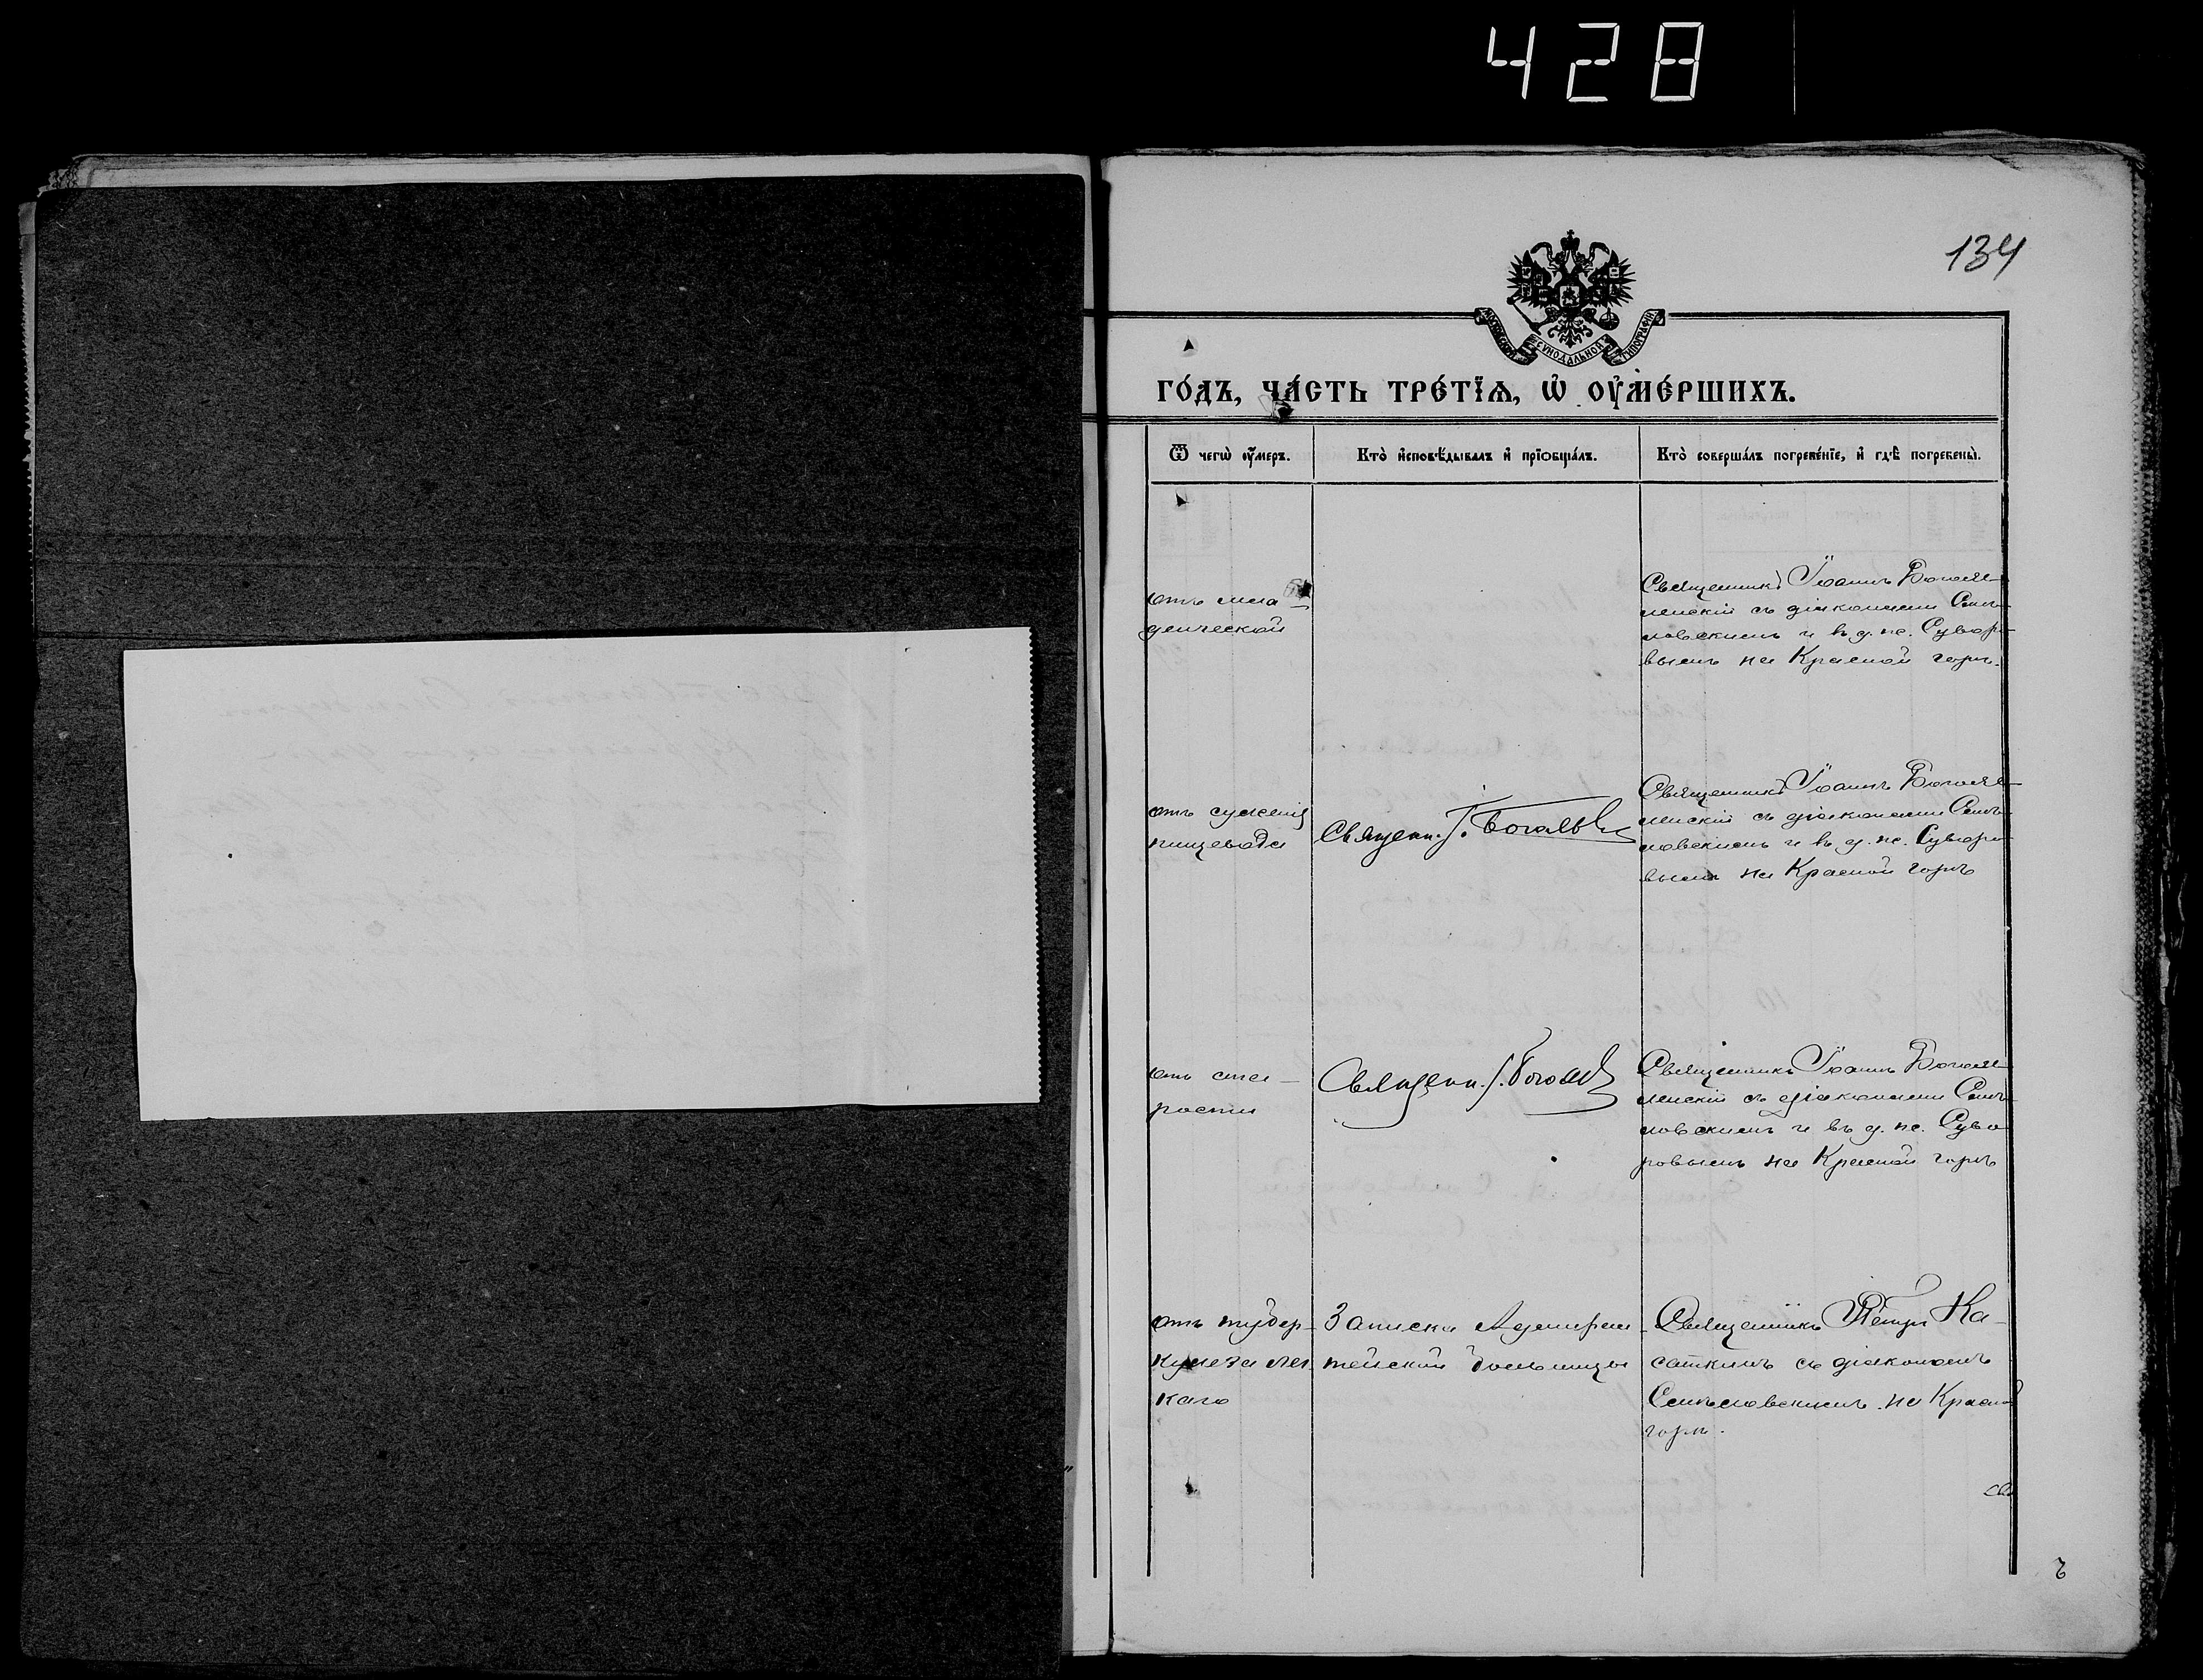 428
134
МОСКОВСКОЙ СѴНОДАЛЬНОЙ ТИПОГРАФІИ
ГО́ДЪ, ЧА́СТЬ ТРЕ́ТЇѦ, Ѡ҆ ОУ҆МЕ́РШИХЪ.
Ѿ чегѡ̀ оу҆́меръ.
Кто̀ и҆сповѣ́дывалъ и҆ прїобща́лъ.
Кто̀ соверша́лъ погребе́нїе, и҆ гдѣ̀ погребены̀.
отъ мла-
денческой
Священникъ Іоаннъ Богояв-
ленскій съ діаконами Смы-
словскимъ и въ д. пс. Суворо-
вымъ на Красной горѣ.
отъ суженія
пищевода
Священн. І. Богоявл
Священникъ Іоаннъ Богояв-
ленскій съ діаконами Смы-
словскимъ и въ д. пс. Суворо-
вымъ на Красной горѣ
отъ ста-
рости
Священн. І. Богоявл
Священникъ Іоаннъ Богояв-
ленскій съ діаконами Смы-
словскимъ и въ д. пс. Суво
ровымъ на Красной горѣ
отъ тубер-
кулеза лег
каго
Записка
больницы
Священникъ Петръ Ка-
саткинъ съ діакономъ
Смысловскимъ на Красной
горѣ.